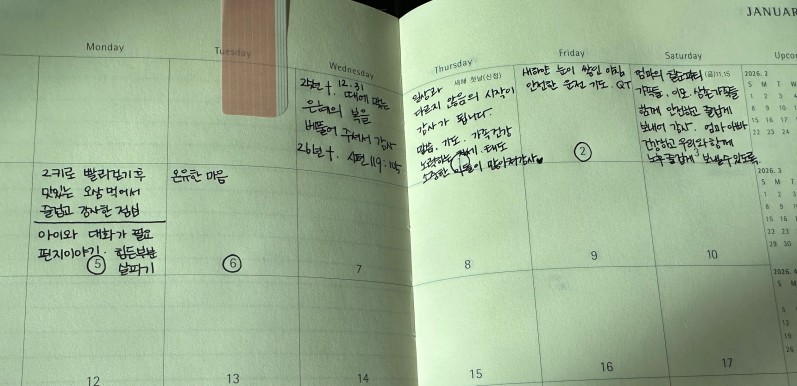 JANUAR
Monday
Tuesday
Wednesday
25년 †. 12.31
때에 맞는
은혜의 복을
베풀어 주셔서 감사
26년 †. 시편 119:115
Thursday
새해 첫날(신정)
일상과
다르지 않음의 시작이
감사가 됩니다.
말씀. 기도. 가족건강
노력하는 태도
소중한 이들이 많아져감사♥
Friday
새하얀 눈이 쌓인 아침
안전한 운전 기도. QT
2
Saturday
엄마의 칠순파티 (음)11.15
가족들, 이모, 삼촌가족들
함께 안전하고 즐겁게
보내어 감사. 엄마 아빠
건강하고 우리와 함께
노후 즐겁게 보낼수 있도록
3
Upco
2026. 2
S M T W
1 2 3 4
8 9 10
15 16 17
22 23 24
2026. 3
S M T
1 2 3
8 9
15 16
22 23
29 30
2026. 4
S M
5
12
19
26
2키로 빨리걷기 후
맛있는 오삼 먹어서
즐겁고 감사한 점심
아이와 대화가 필요
편지이야기. 힘든부분
살피기
5
온유한 마음
6
7
8
9
10
12
13
14
15
16
17